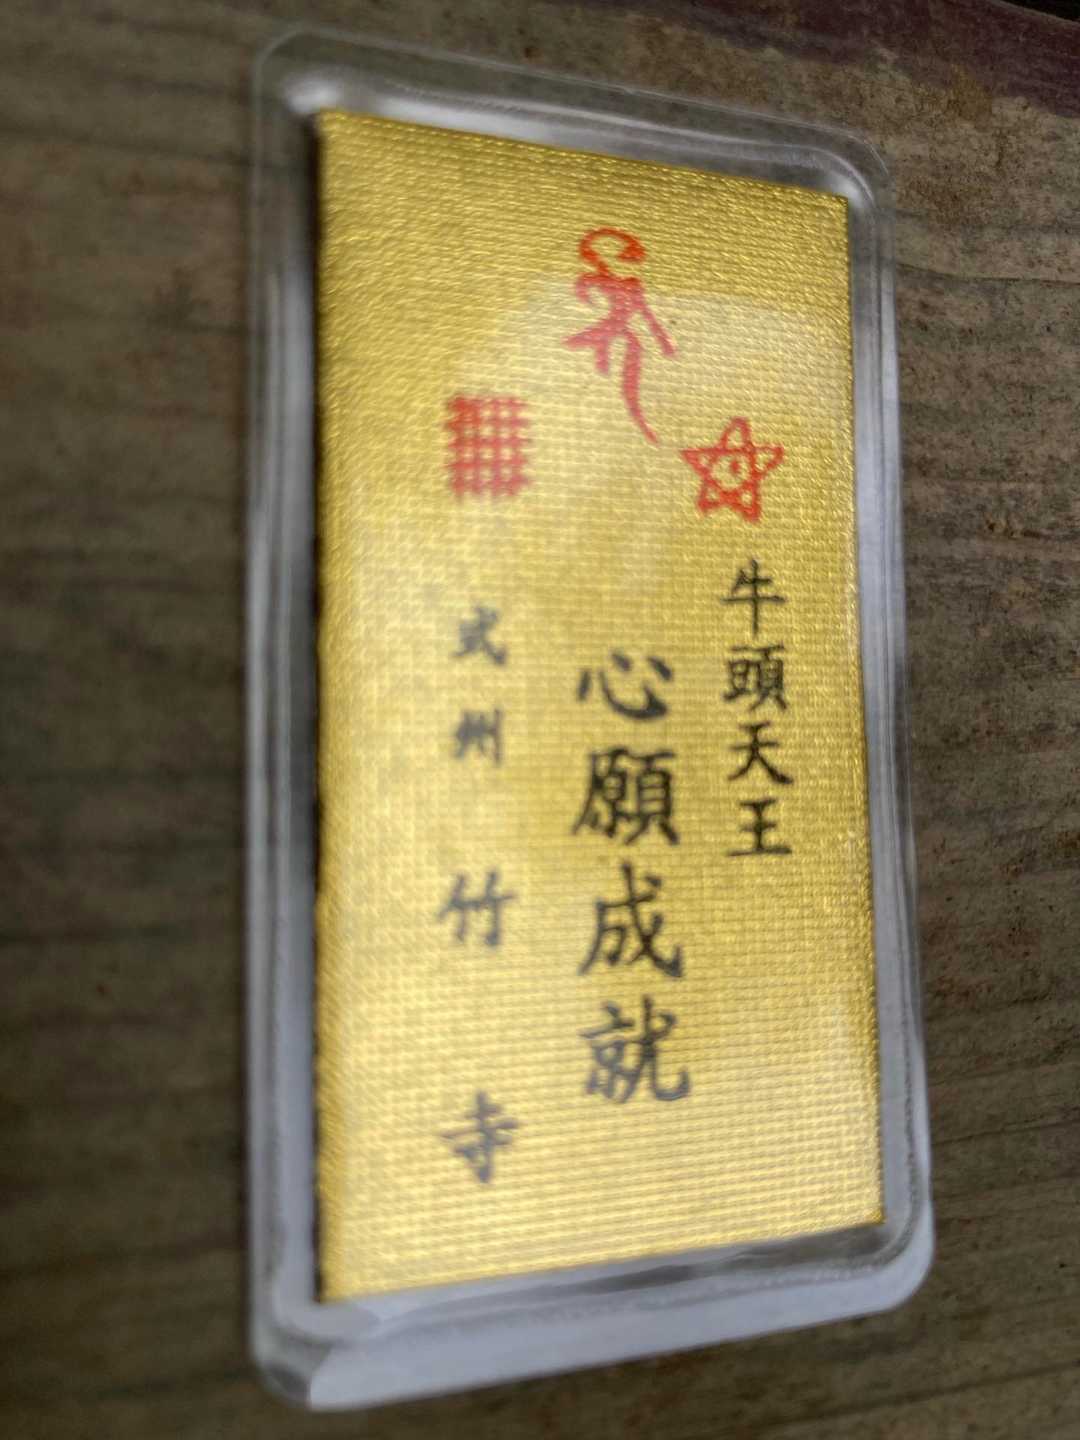 牛頭天王
心願成就
武州竹寺